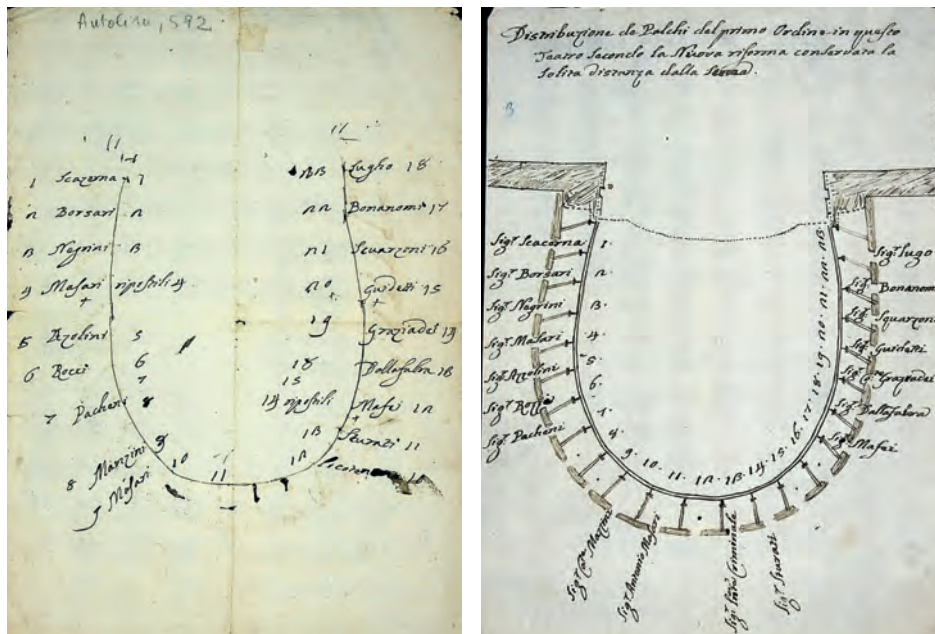 1 Scacerna 1
2 Borsari 2
3 Negrini 3
4 Masari riposhli 4
5 Azolini 5
6 Rocci 6
7
7 Pacheni 8
8 Manzini 9
9 Masari 10
11
23 Lugho 18
22 Bonanomi 17
21 Scuarzoni 16
20 Guidetti 15
19 Graziadei
18 Dallafabra 13
15
14 Mafei 12
13 Scurati 11
12
Distribuzione de Palchi del primo Ordine in questo
Teatro Secondo la Nuova riforma conservata la
solita distanza dalla Scena.
3
Sig.r Scacerna 1.
Sig.r Borsari 2.
Sig.r Negrini 3.
Sig.r Masari 4.
Sig.r Azolini 5.
Sig.r 6.
Sig.r Pacheni
9. 10. 11. 12. 13. 14. 15. 16. 17. 18. 19. 20. 21. 22. 23.
Sig.r Lugo
Sig.r Bonanomi
Sig.r Squarzoni
Sig.r Guidetti
Graziadei
Dallafabra
Sig.r Mafei
Sig.r Antonio Masari
Sig.r Scurati